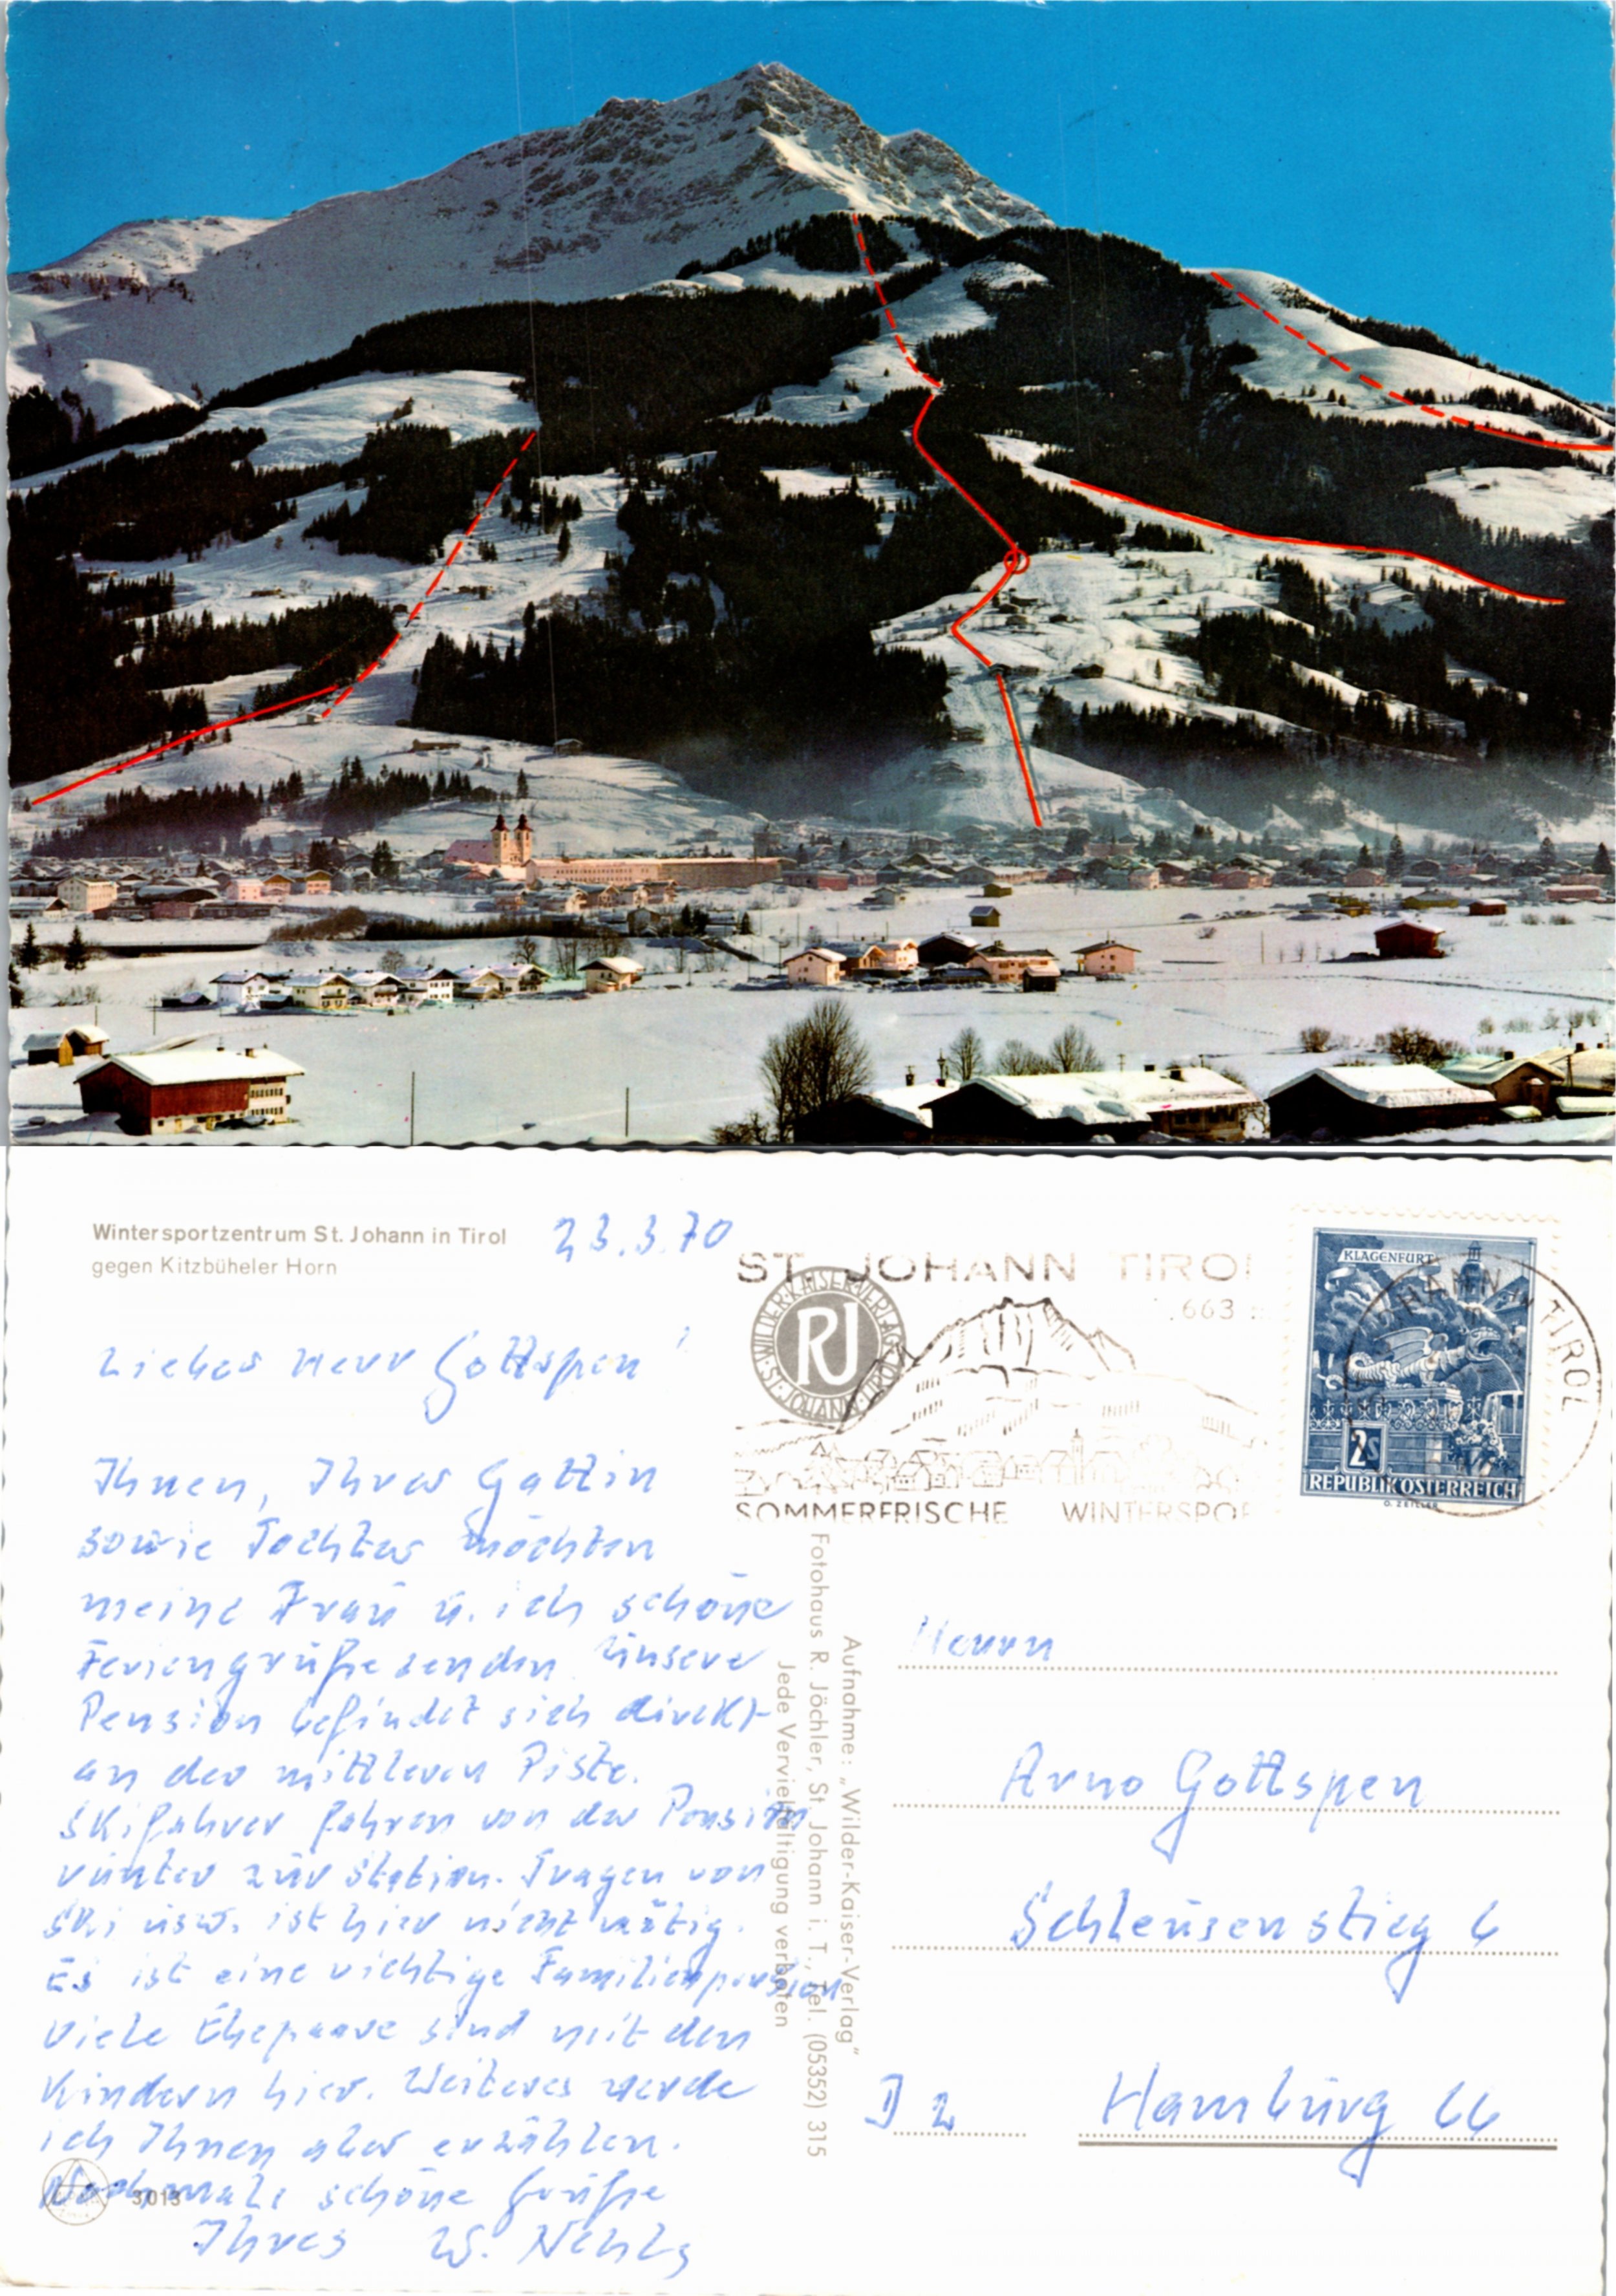 Wintersportzentrum St. Johann in Tirol
gegen Kitzbüheler Horn
23.3.70
Lieber Herr Gottspen!
Ihnen, Ihrer Gattin
sowie Tochter möchten
meine Frau u. ich schöne
Feriengrüße senden. Unsere
Pension befindet sich direkt
an der mittleren Piste.
Skifahrer fahren von der Pension
runter zur Station. Tragen von
Ski usw. ist hier nicht nötig.
Es ist eine richtige Familienpension
Viele Ehepaare sind mit den
Kindern hier. Weiteres werde
ich Ihnen aber erzählen.
Nochmals schöne Grüße
Ihres W.
3013
ST. JOHANN TIROL
663
WILDER-KAISER-VERLAG
RJ
ST. JOHANN TIROL
SOMMERFRISCHE WINTERSPOR
KLAGENFURT
2S
REPUBLIK ÖSTERREICH
O. ZEILLER
HANN IN TIROL
Aufnahme: „Wilder-Kaiser-Verlag"
Fotohaus R. Jöchler, St. Johann i. T., Tel. (05352) 315
Jede Vervielfältigung verboten
Herrn
Arno Gottspen
Schleusenstieg 6
D 2 Hamburg 66